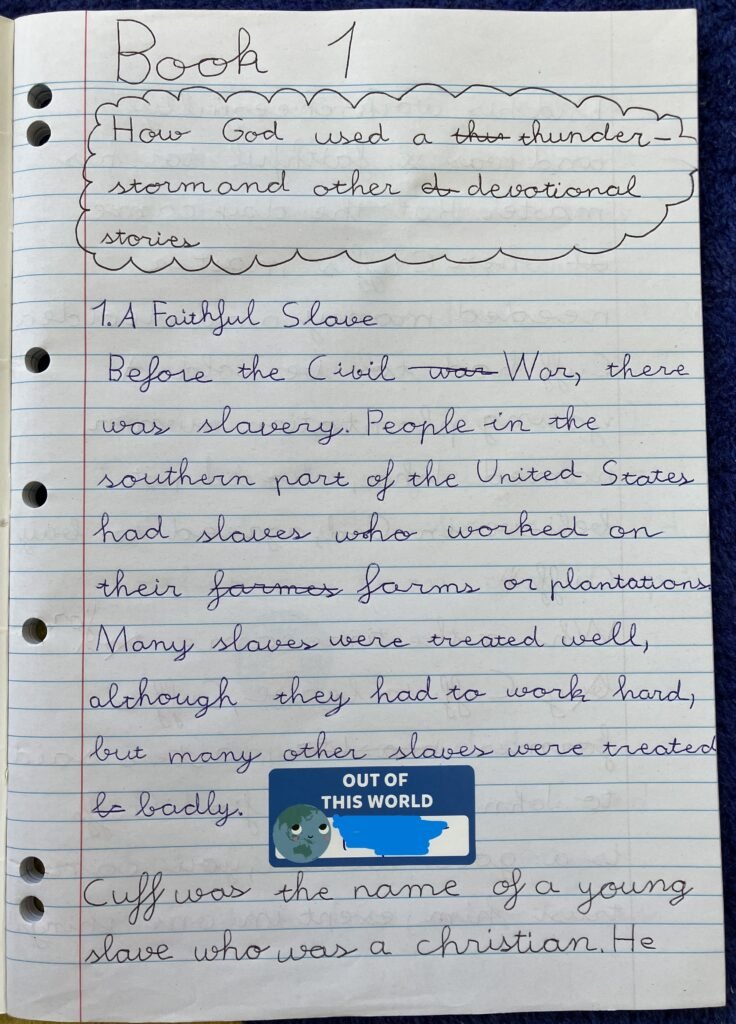 Book 1
How God used a ~~thu~~ thunder-
storm and other ~~d~~ devotional
stories
1. A Faithful Slave
Before the Civil ~~war~~ War, there
was slavery. People in the
southern part of the United States
had slaves who worked on
their ~~farmes~~ farms or plantations.
Many slaves were treated well,
although they had to work hard,
but many other slaves were treated
~~b~~ badly.
OUT OF
THIS WORLD
Cuff was the name of a young
slave who was a christian. He